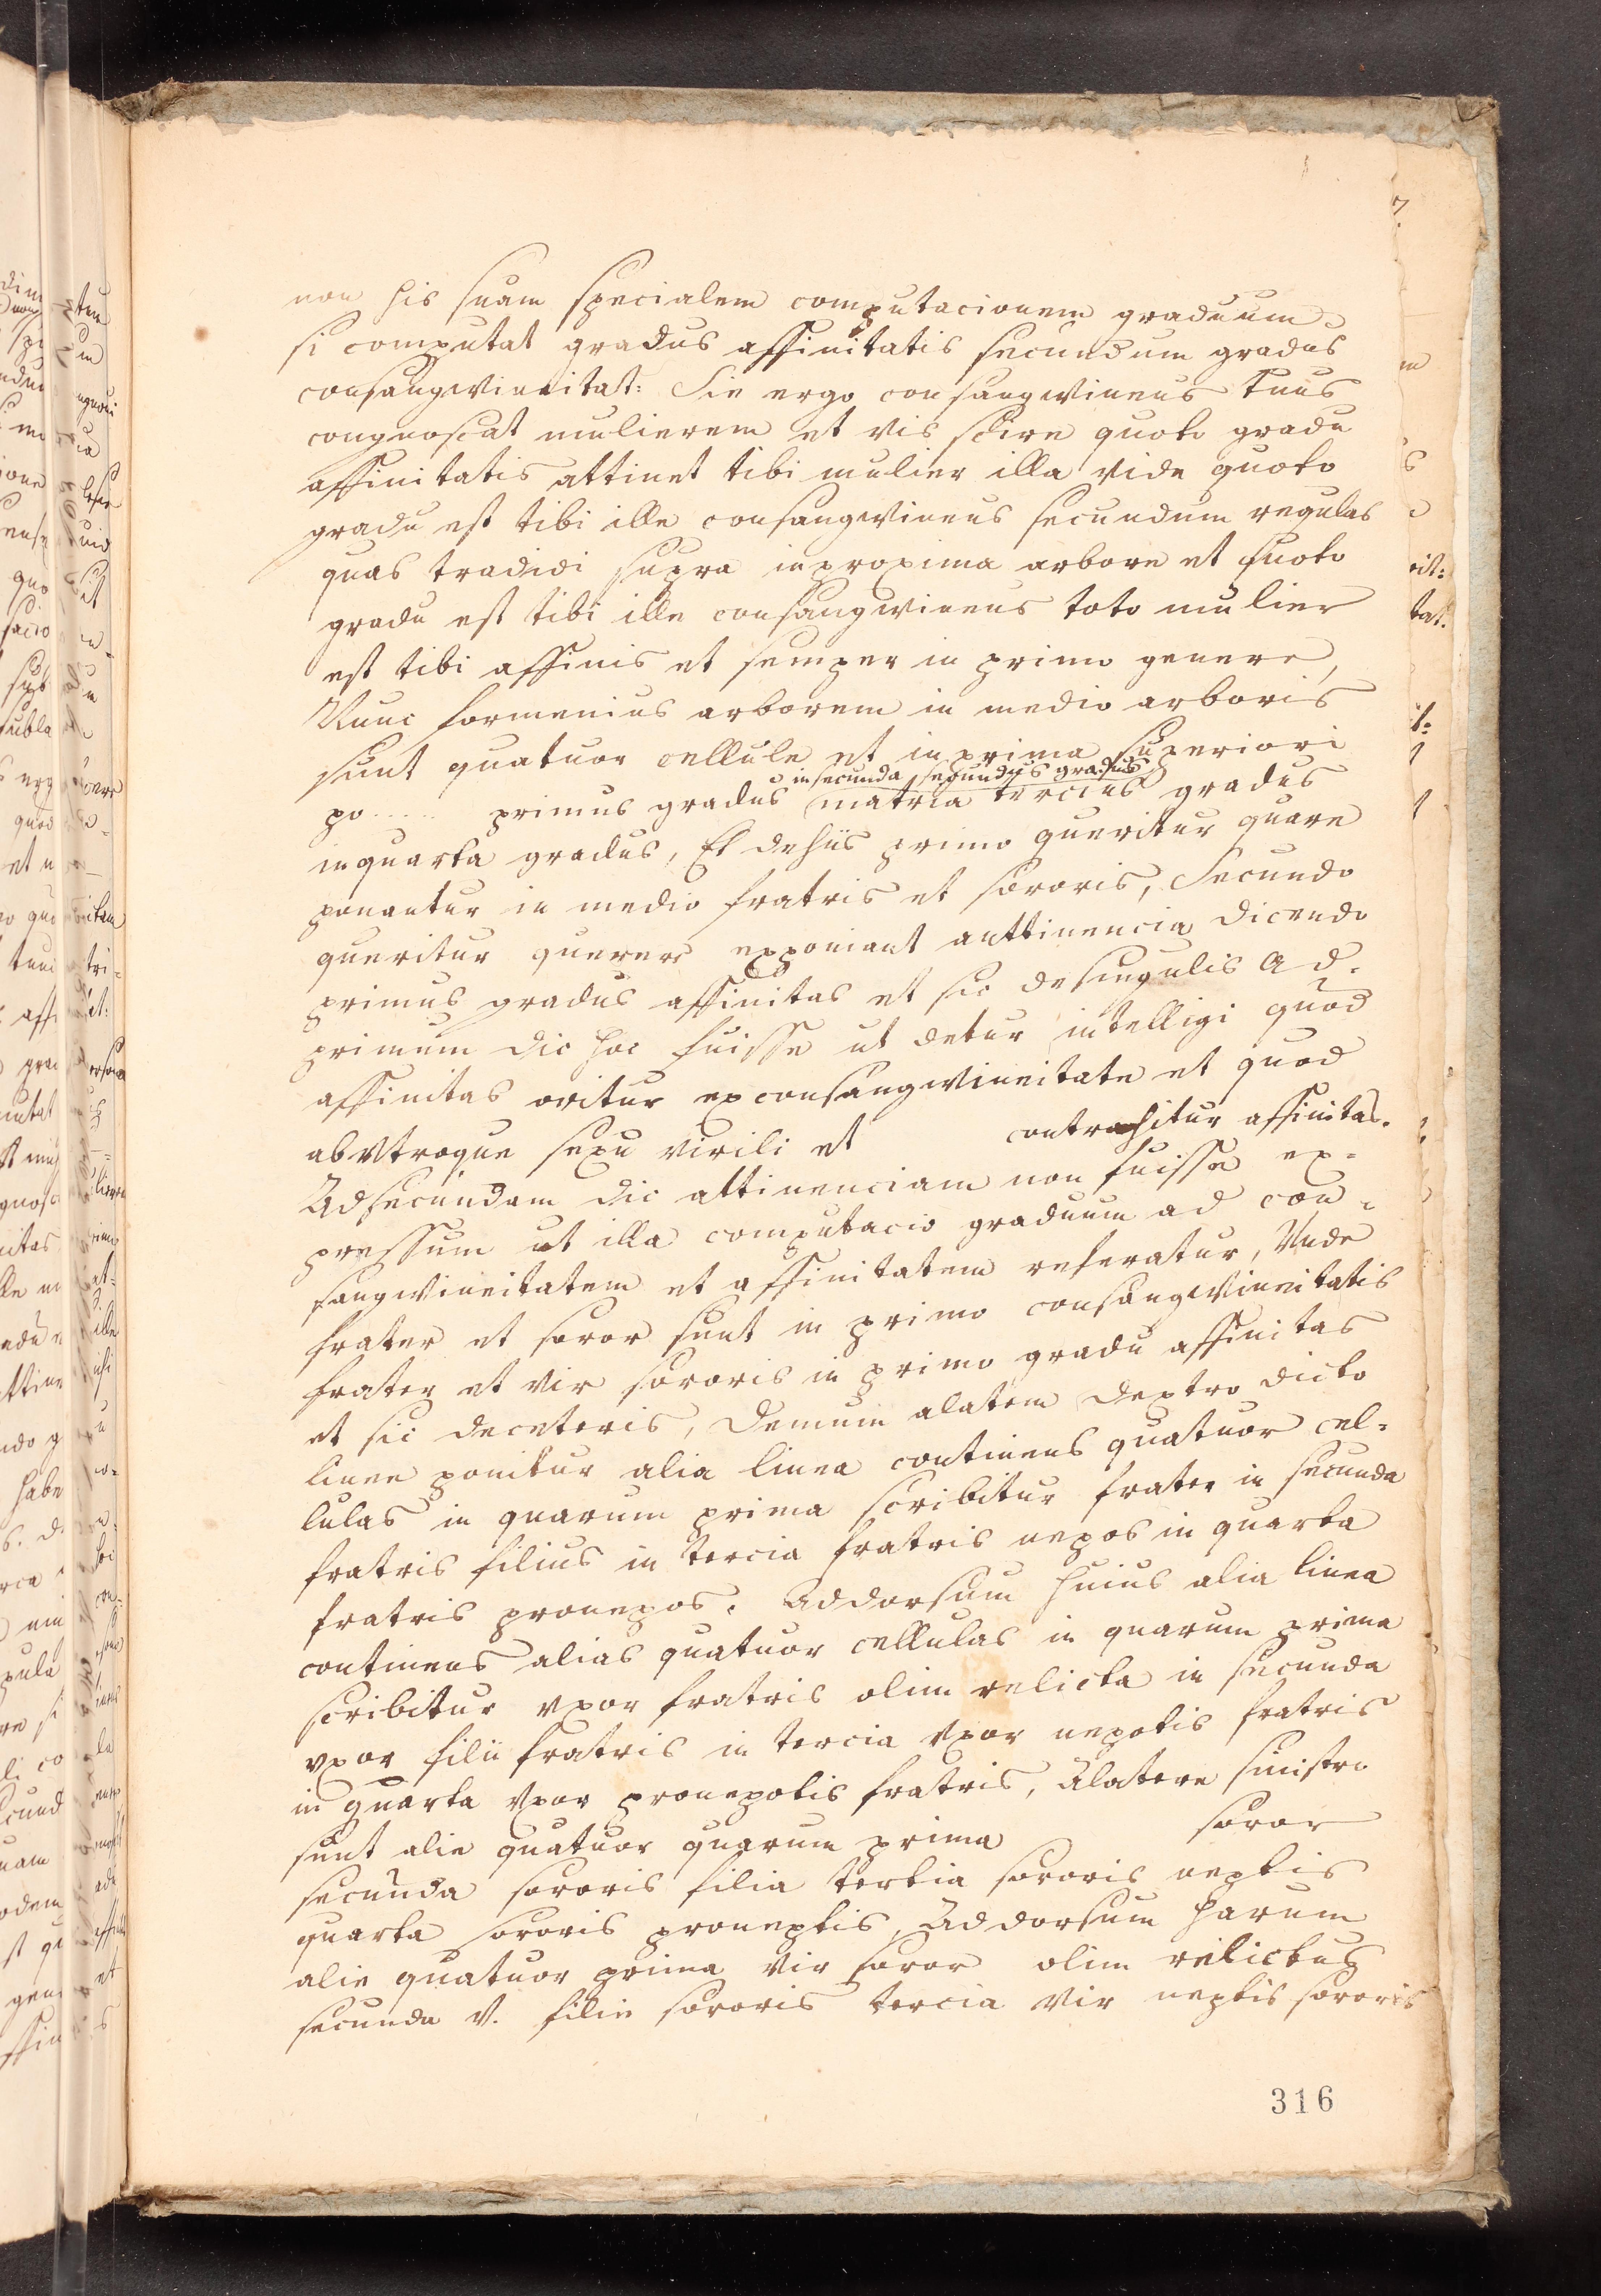 non his suam specialem computacionem graduum
si computat gradus affinitatis secundum gradus
consangwineitat: Sie ergo consangwineus tuus
congnoscat mulierem et vis scire quoto gradu
affinitatis attinet tibi mulier illa vide quoto
gradu est tibi ille consangwineus secundum regulas
quas tradidi supra in proxima arbore et quoto
gradu est tibi ille consangwineus toto mulier
est tibi affinis et semper in primo genere,
Nunc formemus arborem in medio arboris
sunt quatuor cellule et in prima superiori
in secunda secundus gradus
po..... primus gradus matria tercius gradus
in quarta gradus, Et de hiis primo queritur quare
ponantur in medio fratris et sororis, Secundo
queritur querere exponiant attinencia dicendo
primus gradus affinitas et sic de singulis Ad
primum dic hoc fuisse ut detur intelligi quod
affinitas oritur ex consangwineitate et quod
ab vtroque sexu virili et contrahitur affinitas.
Ad secundam dic attinenciam non fuisse ex=
pressum ut illa computacio graduum ad con=
sangwineitatem et affinitatem referatur, Vnde
frater et soror sunt in primo consangwineitatis
frater et vir sororis in primo gradu affinitas
et sic de ceteris, Demum alatem dextro dicto
linee ponitur alia linea continens quatuor cel=
lulas in quarum prima scribitur frater in secunda
fratris filius in tercia fratris nepos in quarta
fratris pronepos. Ad dorsum huius alia linea
continens alias quatuor cellulas in quarum prima
scribitur vxor fratris olim relicta in secunda
vxor filii fratris in tercia vxor nepotis fratris
in quarta vxor pronepotis fratris, Alatere sinistro
sunt alie quatuor quarum prima soror
secunda sororis filia tertia sororis neptis
quarta sororis proneptis, Ad dorsum harum
alie quatuor prima vir soror olim relictus
secunda v. filie sororis tercia vir neptis sororis
316